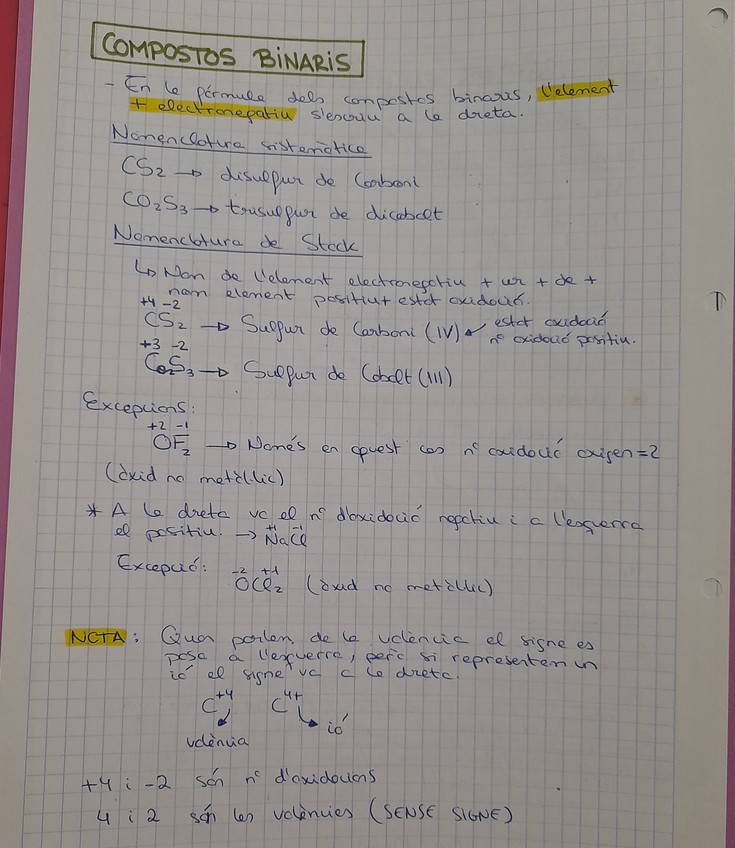 COMPOSTOS BINARIS
- En la fórmula dels compostos binaris, l'element
+ electronegatiu s'escriu a la dreta.
Nomenclatura sistemàtica
CS2 → disulfur de Carboni
CO2S3 → trisulfur de dicobalt
Nomenclatura de Stock
↳ Nom de l'element electronegatiu + ur + de +
nom element positiu + estat oxidació.
+4 -2
CS2 → Sulfur de Carboni (IV) ↙ estat oxidació
nº oxidació positiu.
+3 -2
Co2S3 → Sulfur de Cobalt (III)
Excepcions:
+2 -1
OF2 → Només en aquest cas nº oxidació oxigen = 2
(òxid no metàl·lic)
* A la dreta va el nº d'oxidació negatiu i a l'esquerra
el positiu. → +1 -1 NaCl
Excepció: -2 +1
OCl2 (òxid no metàl·lic)
NOTA: Quan parlem de la valència el signe es
posa a l'esquerra, però si representem un
ió el signe va a la dreta.
C+4 C4+
valència ió
+4 i -2 són nº d'oxidacions
4 i 2 són les valències (SENSE SIGNE)